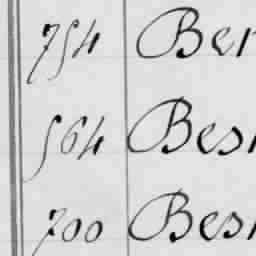 754 Ber
564 Bes
700 Bes